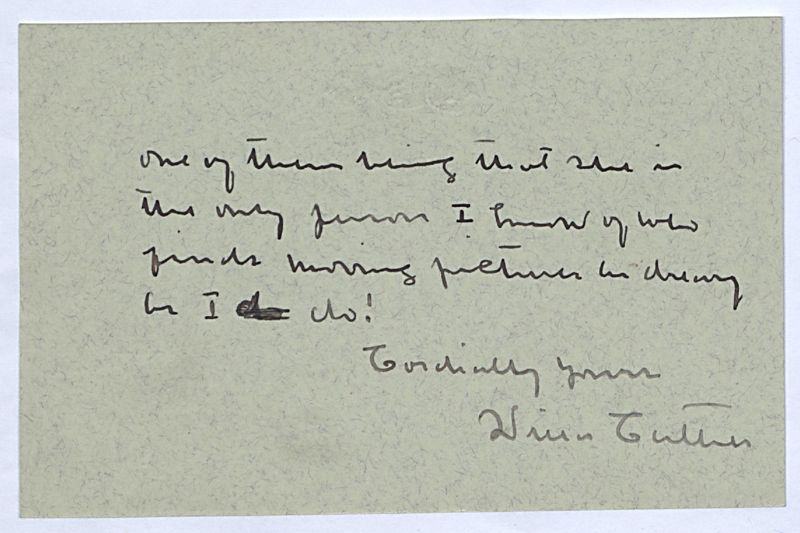 one of them being that she is
the only person I know of who
finds moving pictures as dreary
as I do!
Cordially yours
Willa Cather